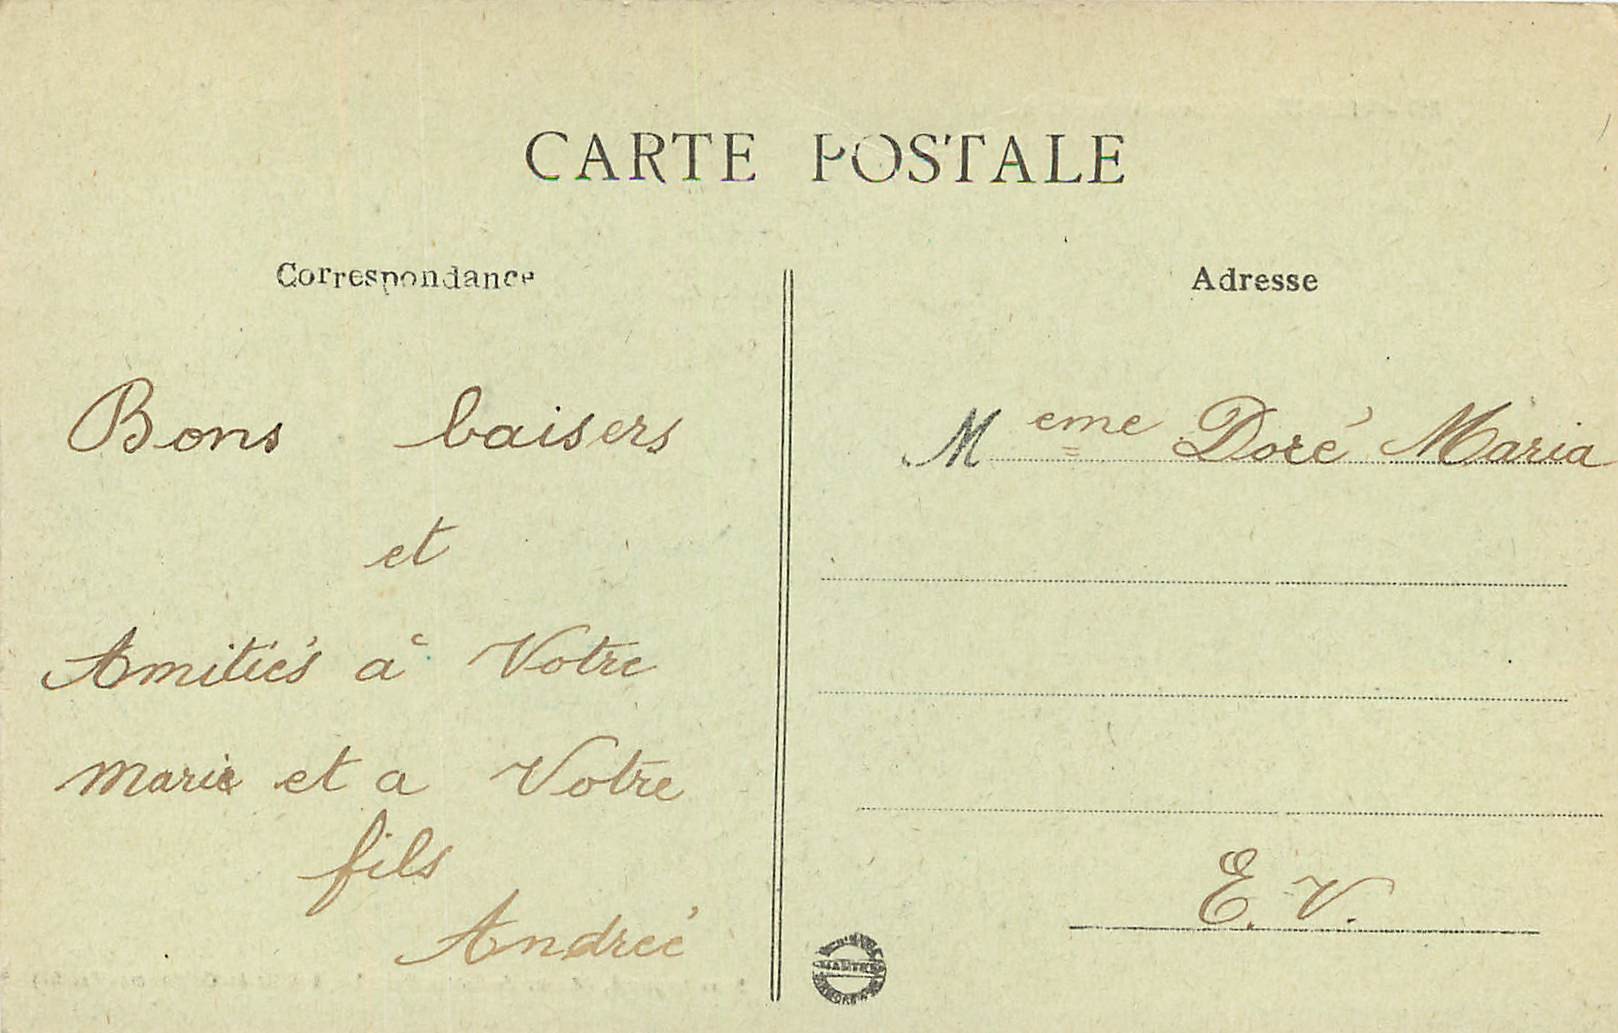 CARTE POSTALE
Correspondance
Bons baisers
et
Amitiés à Votre
Marie et a Votre
fils
Andreé
Adresse
Meme Doré Maria
E. V.
NANTES